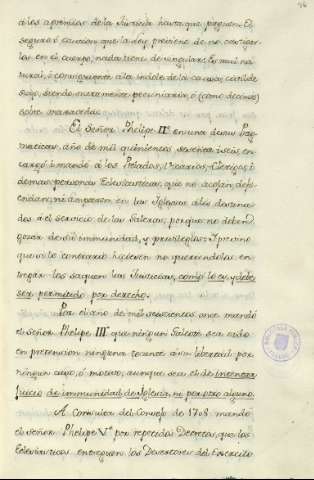 á los apremios de la Justicia hasta que paguen. El
seguro ó caucion que la Ley previene de no castigar
los en el cuerpo, nada tiene de singular. Es mui na
tural, i consiguiente a la indole de la causa, i calidad
suya, siendo meramente pecuniaria, o (como decimos)
sobre maravedis.
El Señor Phelipe IIº en una de sus Prag
maticas, año de mil quinientos sesenta i seis en
cargó i mandó á los Prelados, Vicarios, Clerigos i
demas personas Eclesiasticas, que no acojan, defi
endan, ni amparen en las Iglesias á los destina
dos á el servicio de las Galeras; porque no deben
gozar de su immunidad, y privilegios: I previno
que si lo contrario hicieren no queriendolos en
tregár los saquen las Justicias, como lo es, y debe
ser permitido por derecho.
Por el año de mil seiscientos once mandó
el señor Phelipe IIIº que ningun Galeote sea oido
en pretension ninguna tocante a su libertad por
ningun caso, ó motivo, aunque sea el de intentar
Juicio de immunidad de Iglesia, ni por otro alguno.
A Consulta del Consejo de 1708 mandó
el señor Phelipe Vº por repetidos Decretos, que los
Eclesiasticos entreguen los Desertores del Exercito